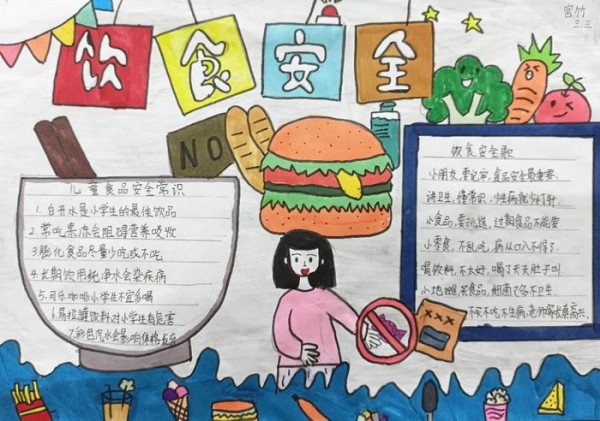 宫竹
三.三
饮食安全
NO
儿童食品安全常识
1.白开水是小学生的最佳饮品
2.常吃果冻会阻碍营养吸收
3.膨化食品尽量少吃或不吃
4.长期饮用纯净水会染疾病
5.可乐咖啡小学生不宜多喝
6.易拉罐饮料对小学生有危害
7.彩色汽水会影响体格生长
饮食安全歌
小朋友,要记牢,食品安全最重要.
讲卫生,懂常识,
小食品,要挑选,过期食品不能要
小零食,不乱吃,病从口入不得了.
喝饮料,不太好,喝了天天肚子叫.
小地摊,买食品,细菌又多不卫生
不买不吃不生病,老师家长真高兴.
xxx